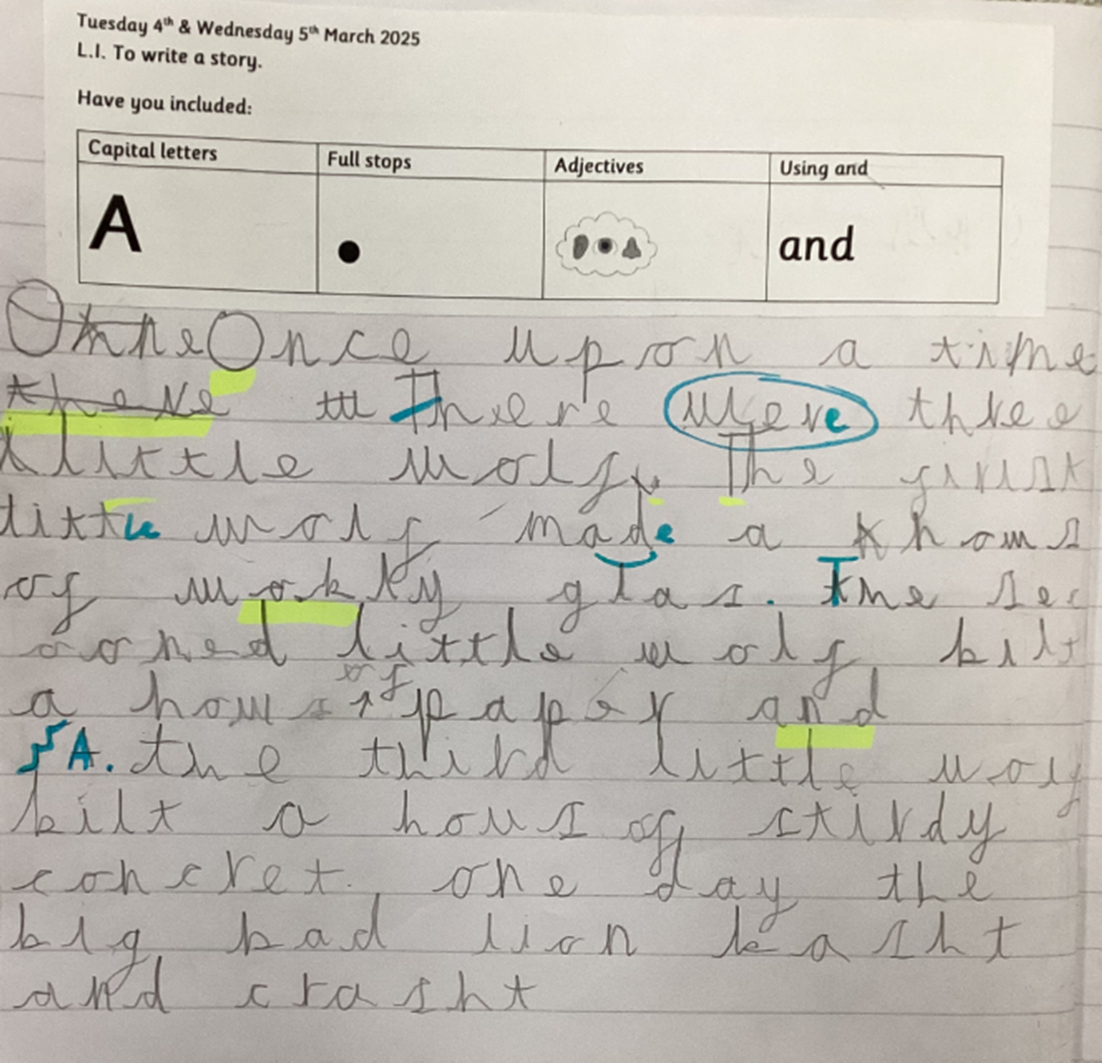 Tuesday 4th & Wednesday 5th March 2025
L.I. To write a story.
Have you included:
Capital letters Full stops Adjectives Using and
A . and
Once upon a time
there There were three
little wolf. The furst
little wolf made a hows
of wobly glas. The sec
oned little wolf bilt
a hows of paper and
A. the third little wolf
bilt a hous of stirdy
concret. one day the
big bad lion basht
and crasht